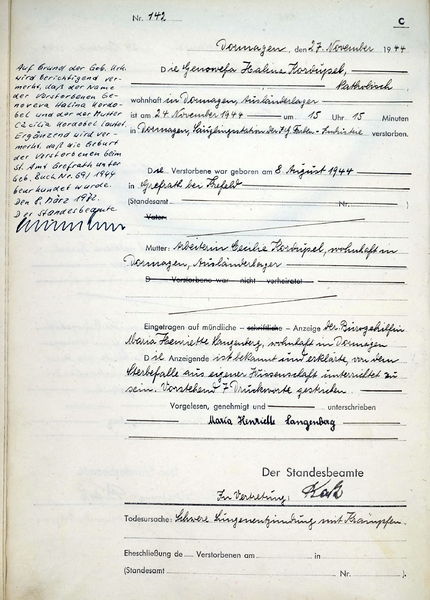 Nr. 142
C
Dormagen, den 27. November 1944
Auf Grund der Geb. Urk.
wird berichtigend ver-
merkt, daß der Name
der Verstorbenen Ge-
noveva Halina Kordo-
bel und der der Mutter
Cäcilia Kordobel lautet.
Ergänzend wird ver-
merkt, daß die Geburt
der Verstorbenen beim
St. Amt Grefrath unter
Geb. Buch Nr. 69/1944
beurkundet wurde.
Den 8. März 1972.
Der Standesbeamte
Die Genowefa Halina Korbüpsel,
Katholisch
wohnhaft in Dormagen, Ausländerlager
ist am 24. November 1944 um 15 Uhr 15 Minuten
in Dormagen, Säuglingsstation der I.G. Farben-Industrie verstorben.
Die Verstorbene war geboren am 8. August 1944
in Grefrath bei Krefeld
(Standesamt Nr. )
Vater
Mutter: Arbeiterin Cecilie Korbüpsel, wohnhaft in
Dormagen, Ausländerlager
D Verstorbene war nicht verheiratet
Eingetragen auf mündliche – schriftliche – Anzeige der Bürogehilfin
Maria Henriette Langenberg, wohnhaft in Dormagen
Die Anzeigende ist bekannt und erklärte, von dem
Sterbefalle aus eigener Wissenschaft unterrichtet zu
sein. Vorstehend 7 Druckworte gestrichen.
Vorgelesen, genehmigt und unterschrieben
Maria Henriette Langenberg
Der Standesbeamte
In Vertretung:
Todesursache: Schwere Lungenentzündung mit Krämpfen.
Eheschließung de Verstorbenen am in
(Standesamt Nr. )